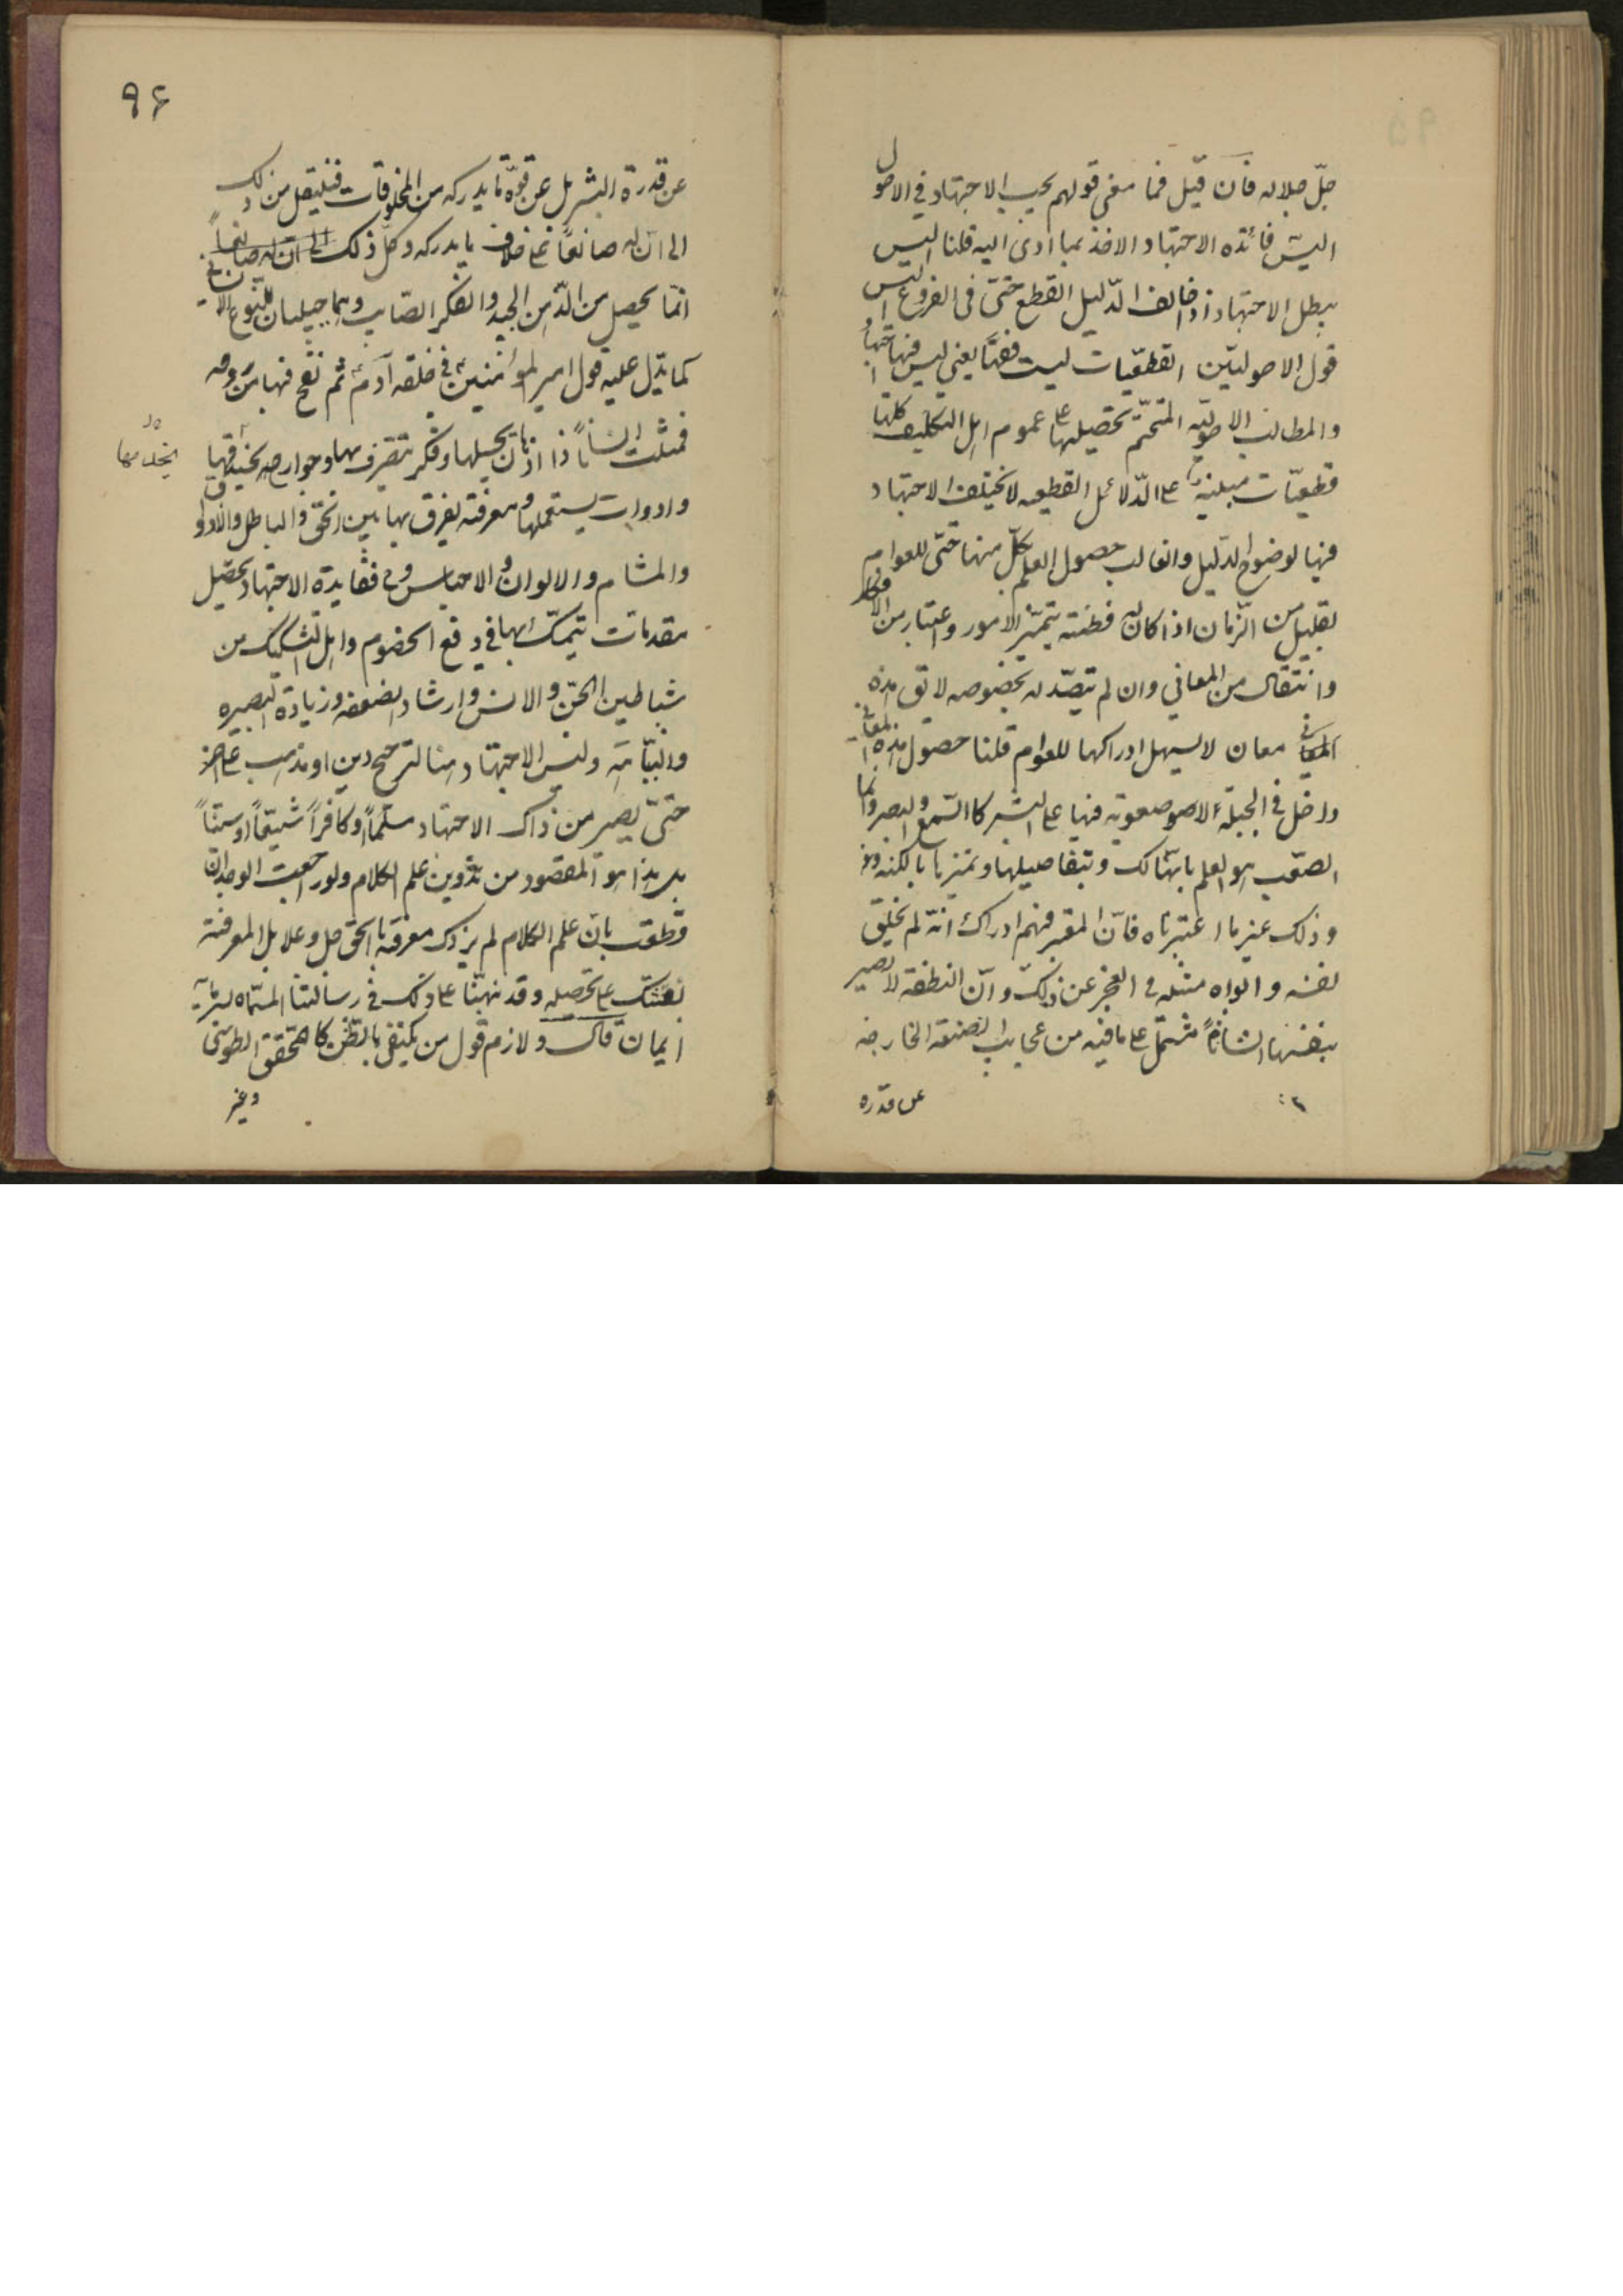 جلّ جلاله فان قيل فما معنى قولهم يجب الاجتهاد في الاصول
اليس فائده الاجتهاد الاخذ بما ادى اليه قلنا اليس
يبطل الاجتهاد اذا خالف الدّليل القطع حتّى في الفروع اليس
قول الاصوليّين القطعيّات ليست فقهًا يعني ليس فيها اجتهاد
والمطالب الاصوليّه المتحتّم تحصيلها على عموم اهل التكليف كلها
قطعيّات مبنية على الدّلائل القطعيه لا يختلف الاجتهاد
فيها لوضوح الدّليل والغالب حصول العلم بكلّ منها حتّى للعوام
بقليل من الزّمان اذا كان له فطنته بتميّز الامور واعتبار من الافكار
وانتقال من المعاني وان لم تتصدّ له بخصوصه لا تق هذه
المعانى معان لا يسهل ادراكها للعوام قلنا حصول هذه المعانى
داخل في الجبلّة لا صعوبة فيها على البشر كالسّمع والبصر وانما
الصّعب هو العلم بانّها لك وبتفاصيلها وتمييزها بالكنه
وذلك غير ما اعتبرناه فانّ المعتبر فهم ادراك انه لم يخلق
نفسه وابواه مثله في العجز عن ذلك وانّ النطفة لا تصير
بنفسها انسانًا مشتمل على ما فيه من عجايب الصنعة الخارجه
عن قدره
٩٦
عن قدرة البشر بل عن قوّة ما يدركه من المخلوقات فينتقل من ذلك
الى ان له صانعًا على خلاف ما يدركه وكلّ ذلك الى ان له صانعاً
انّما يحصل من الذّهن الجيد والفكر الصّايب وهما جبليان للنّوع الانساني
كما يدّل عليه قول امير المؤمنين في خلقه آدم ثم نفخ فيها من روحه
فمثلت انسانًا ذا اذهان يجيلها وفكر يتصرف بها وجوارح يختدمها
وادوات يستعملها ومعرفته يفرق بها بين الحقّ والباطل والاذواق
والمشام والالوان والاجناس وح ففايدة الاجتهاد تحصيل
مقدمات يتمسّك بها في دفع الخصوم واهل التشكيك من
شياطين الجنّ والانس وارشاد الضعفه وزيادة البصيره
والنّباهة وليس الاجتهاد هنا لترجيح دين او مذهب على اخر
حتّى يصير من ذاك الاجتهاد مسلمًا او كافراً شيعيّاً او سنيّاً
بل هذا هو المقصود من تدوين علم الكلام ولو راجعت الوجدان
وقطعت بان علم الكلام لم يزدك معرفة بالحق جل وعلا بل المعرفة
بعثتك على تحصيله وقد نبهنّا على ذلك في رسالتنا المسمّاه
ايمان قال ولازم قول من يكتفى بالظّن كالمحقق الطوسى
وغير